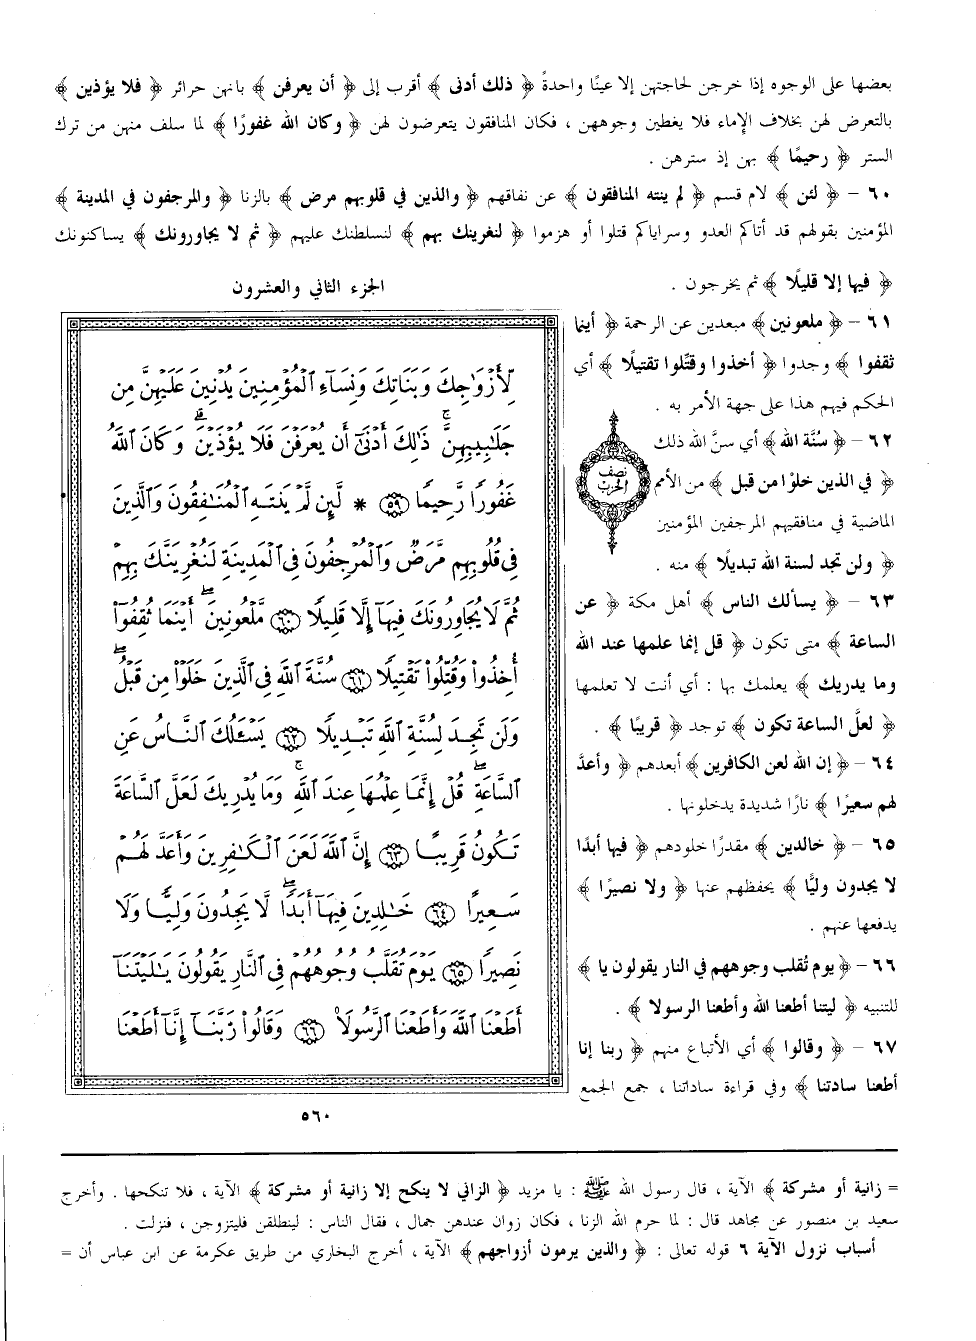 بعضها على الوجوه إذا خرجن لحاجتهن إلا عينًا واحدةً ﴿ ذلك أدنى ﴾ أقرب إلى ﴿ أن يعرفن ﴾ بانهن حرائر ﴿ فلا يؤذين ﴾
بالتعرض لهن بخلاف الإماء فلا يغطين وجوههن ، فكان المنافقون يتعرضون لهن ﴿ وكان الله غفورًا ﴾ لما سلف منهن من ترك
الستر ﴿ رحيمًا ﴾ بهن إذ سترهن .
٦٠ – ﴿ لئن ﴾ لام قسم ﴿ لم ينته المنافقون ﴾ عن نفاقهم ﴿ والذين في قلوبهم مرض ﴾ بالزنا ﴿ والمرجفون في المدينة ﴾
المؤمنين بقولهم قد أتاكم العدو وسراياكم قتلوا أو هزموا ﴿ لنغرينك بهم ﴾ لنسلطنك عليهم ﴿ ثم لا يجاورونك ﴾ يساكنونك
﴿ فيها إلا قليلًا ﴾ ثم يخرجون .
٦١ – ﴿ ملعونين ﴾ مبعدين عن الرحمة ﴿ أينما
ثقفوا ﴾ وجدوا ﴿ أخذوا وقتّلوا تقتيلًا ﴾ أي
الحكم فيهم هذا على جهة الأمر به .
٦٢ – ﴿ سُنَّة الله ﴾ أي سنَّ الله ذلك
﴿ في الذين خلوْا من قبل ﴾ من الأمم
الماضية في منافقيهم المرجفين المؤمنين
﴿ ولن تجد لسنة الله تبديلًا ﴾ منه .
٦٣ – ﴿ يسألك الناس ﴾ أهل مكة ﴿ عن
الساعة ﴾ متى تكون ﴿ قل إنما علمها عند الله
وما يدريك ﴾ يعلمك بها : أي أنت لا تعلمها
﴿ لعلَّ الساعة تكون ﴾ توجد ﴿ قريبًا ﴾ .
٦٤ – ﴿ إن الله لعن الكافرين ﴾ أبعدهم ﴿ وأعدَّ
لهم سعيرًا ﴾ نارًا شديدة يدخلونها .
٦٥ – ﴿ خالدين ﴾ مقدرًا خلودهم ﴿ فيها أبدًا
لا يجدون وليًّا ﴾ يحفظهم عنها ﴿ ولا نصيرًا ﴾
يدفعها عنهم .
٦٦ – ﴿ يوم تُقلب وجوههم في النار يقولون يا ﴾
للتنبيه ﴿ ليتنا أطعنا الله وأطعنا الرسولا ﴾ .
٦٧ – ﴿ وقالوا ﴾ أي الأتباع منهم ﴿ ربنا إنا
أطعنا سادتنا ﴾ وفي قراءة ساداتنا ، جمع الجمع
نصف
الحزب
الجزء الثاني والعشرون
لِّأَزْوَٰجِكَ وَبَنَاتِكَ وَنِسَآءِ ٱلْمُؤْمِنِينَ يُدْنِينَ عَلَيْهِنَّ مِن
جَلَٰبِيبِهِنَّ ۚ ذَٰلِكَ أَدْنَىٰٓ أَن يُعْرَفْنَ فَلَا يُؤْذَيْنَ ۗ وَكَانَ ٱللَّهُ
غَفُورًا رَّحِيمًا ﴿٥٩﴾ * لَّئِن لَّمْ يَنتَهِ ٱلْمُنَٰفِقُونَ وَٱلَّذِينَ
فِى قُلُوبِهِم مَّرَضٌ وَٱلْمُرْجِفُونَ فِى ٱلْمَدِينَةِ لَنُغْرِيَنَّكَ بِهِمْ
ثُمَّ لَا يُجَاوِرُونَكَ فِيهَآ إِلَّا قَلِيلًا ﴿٦٠﴾ مَّلْعُونِينَ ۖ أَيْنَمَا ثُقِفُوٓا۟
أُخِذُوا۟ وَقُتِّلُوا۟ تَقْتِيلًا ﴿٦١﴾ سُنَّةَ ٱللَّهِ فِى ٱلَّذِينَ خَلَوْا۟ مِن قَبْلُ ۖ
وَلَن تَجِدَ لِسُنَّةِ ٱللَّهِ تَبْدِيلًا ﴿٦٢﴾ يَسْـَٔلُكَ ٱلنَّاسُ عَنِ
ٱلسَّاعَةِ ۖ قُلْ إِنَّمَا عِلْمُهَا عِندَ ٱللَّهِ ۚ وَمَا يُدْرِيكَ لَعَلَّ ٱلسَّاعَةَ
تَكُونُ قَرِيبًا ﴿٦٣﴾ إِنَّ ٱللَّهَ لَعَنَ ٱلْكَٰفِرِينَ وَأَعَدَّ لَهُمْ
سَعِيرًا ﴿٦٤﴾ خَٰلِدِينَ فِيهَآ أَبَدًا ۖ لَّا يَجِدُونَ وَلِيًّا وَلَا
نَصِيرًا ﴿٦٥﴾ يَوْمَ تُقَلَّبُ وُجُوهُهُمْ فِى ٱلنَّارِ يَقُولُونَ يَٰلَيْتَنَآ
أَطَعْنَا ٱللَّهَ وَأَطَعْنَا ٱلرَّسُولَا۠ ﴿٦٦﴾ وَقَالُوا۟ رَبَّنَآ إِنَّآ أَطَعْنَا
٥٦٠
= زانية أو مشركة ﴾ الآية ، قال رسول الله ﷺ : يا مزيد ﴿ الزاني لا ينكح إلا زانية أو مشركة ﴾ الآية ، فلا تنكحها . وأخرج
سعيد بن منصور عن مجاهد قال : لما حرم الله الزنا ، فكان زوان عندهن جمال ، فقال الناس : لينطلقن فليتزوجن ، فنزلت .
أسباب نزول الآية ٦ قوله تعالى : ﴿ والذين يرمون أزواجهم ﴾ الآية ، أخرج البخاري من طريق عكرمة عن ابن عباس أن =